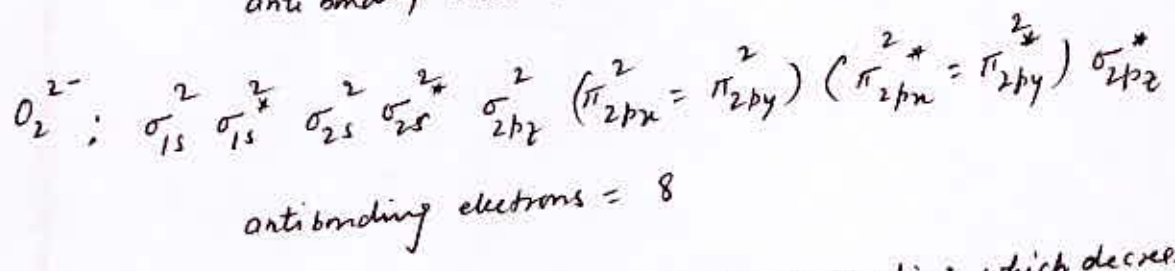 anti
O₂²⁻ : σ1s² σ1s²* σ2s² σ2s²* σ2pz² (π2px² = π2py²) (π2px²* = π2py²*) σ2pz*
antibonding electrons = 8
which decrea